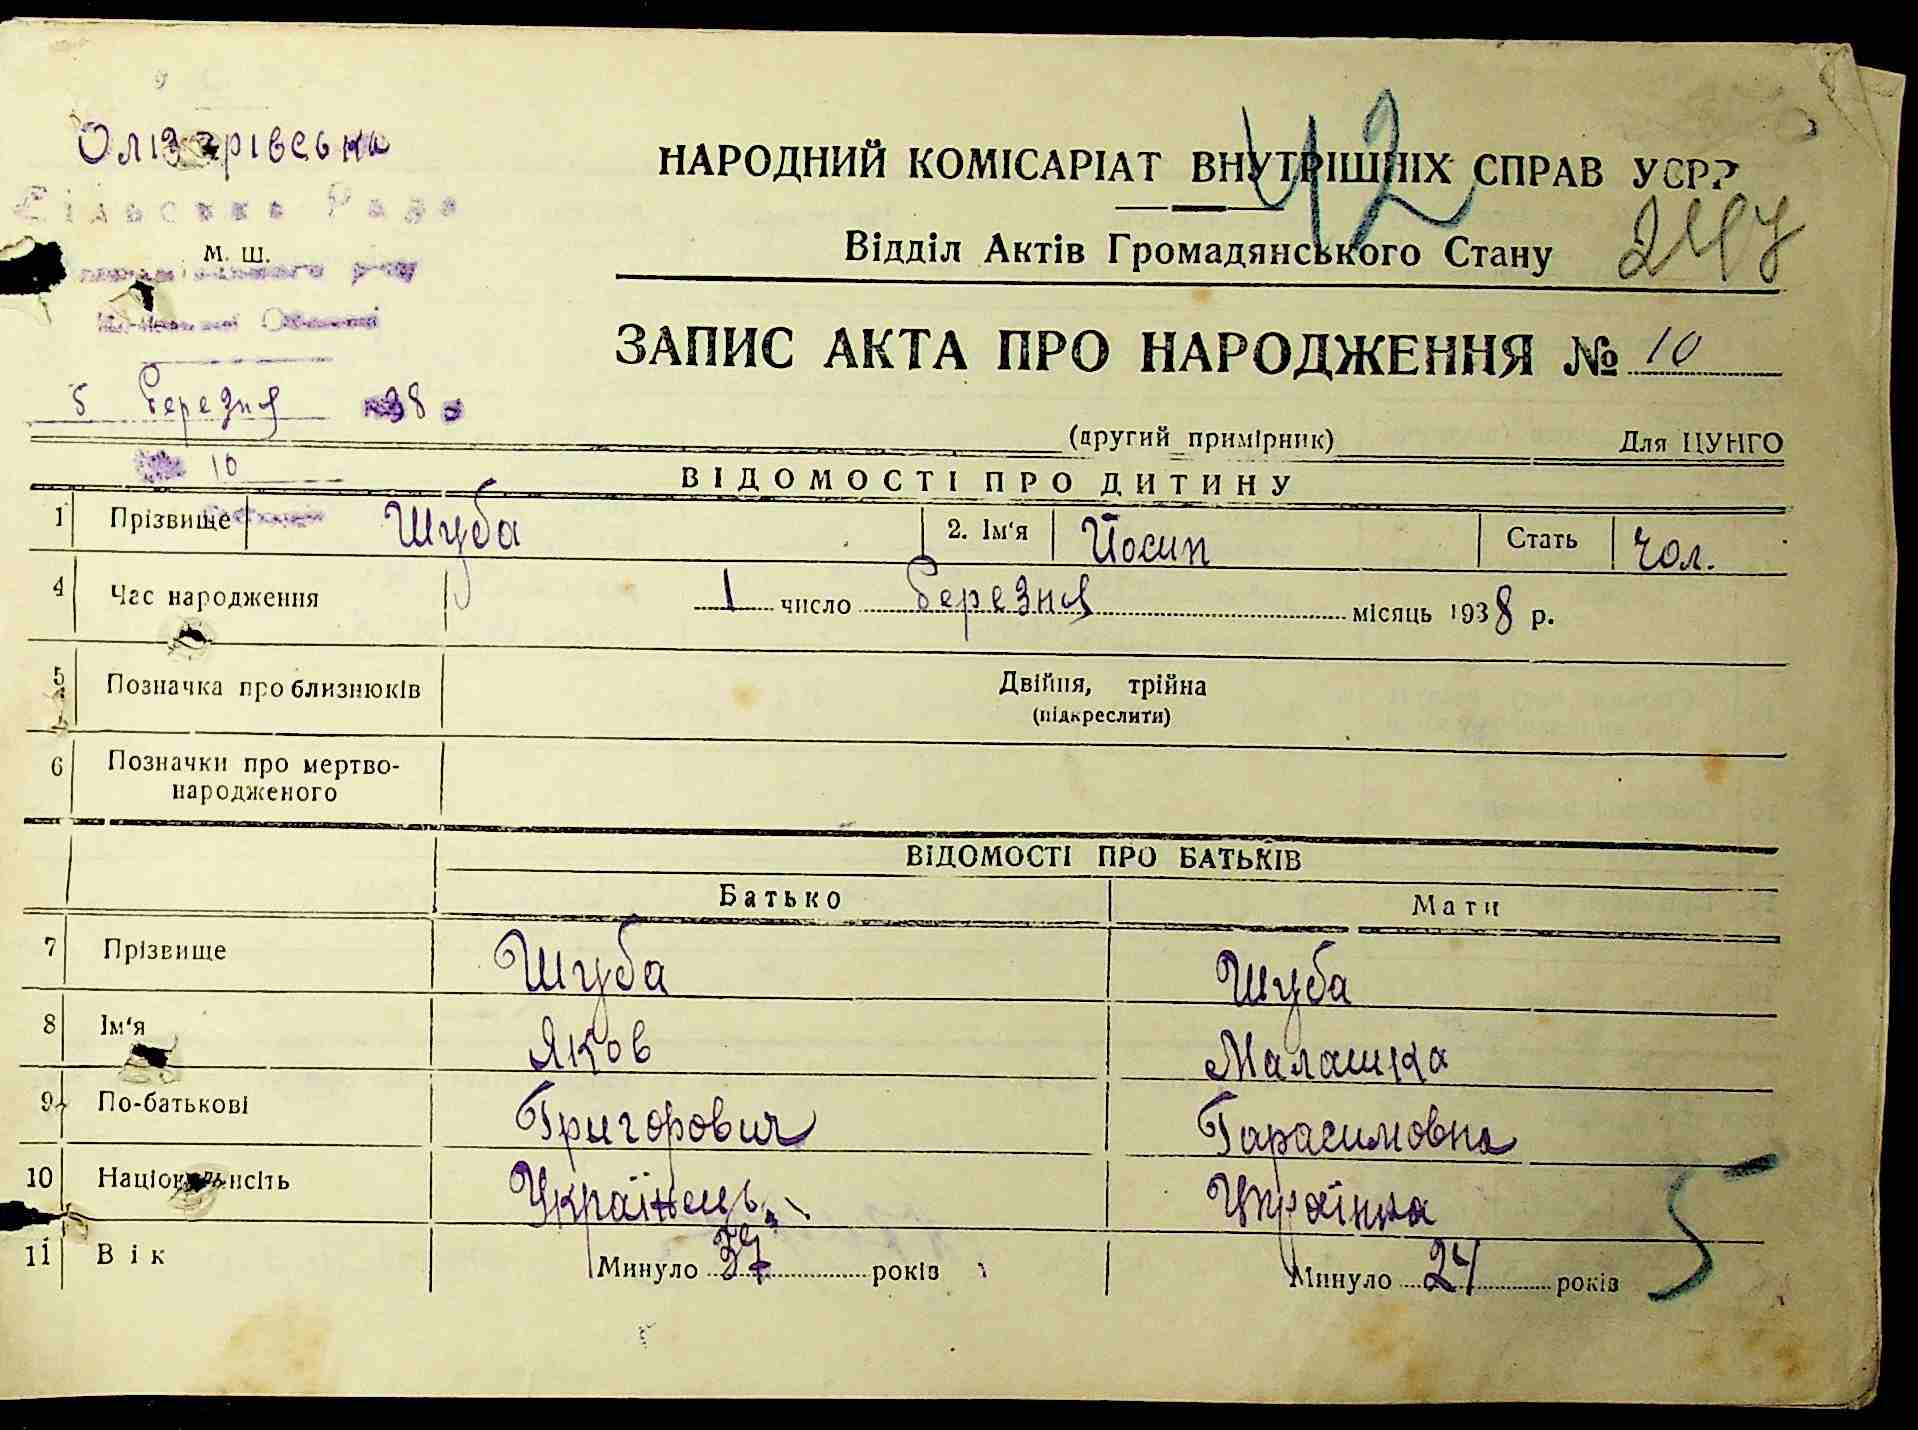 Олізарівська
Сільська Рада
М. Ш.
Області
5 березня 38
10
42
НАРОДНИЙ КОМІСАРІАТ ВНУТРІШНІХ СПРАВ УСРР
Відділ Актів Громадянського Стану
247
ЗАПИС АКТА ПРО НАРОДЖЕННЯ № 10
(другий примірник) Для ЦУНГО
ВІДОМОСТІ ПРО ДИТИНУ
1 Прізвище Шуба 2. Ім'я Йосип Стать чол.
4 Час народження 1 число березня місяць 1938 р.
5 Позначка про близнюків Двійня, трійна
(підкреслити)
6 Позначки про мертво-
народженого
ВІДОМОСТІ ПРО БАТЬКІВ
Батько Мати
7 Прізвище Шуба Шуба
8 Ім'я Яков Малашка
9 По-батькові Григорович Гарасимовна
10 Національність Українець Українка
11 Вік Минуло 37 років Минуло 24 років
5